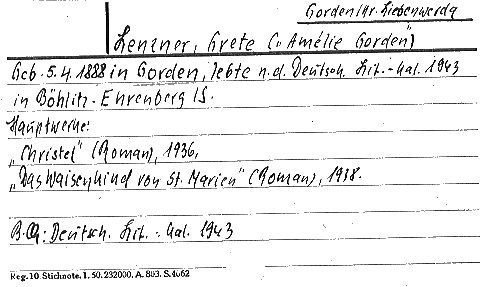 Gorden/Kr. Liebenwerda
Lenzner, Grete („Amélie Gorden")
Geb. 5.4.1888 in Gorden, lebte n.d. Deutsch. Lit.-Kal. 1943
in Böhlitz-Ehrenberg/S.
Hauptwerke:
„Christel" (Roman), 1936,
„Das Waisenkind von St. Marien" (Roman), 1938.
B.Qu: Deutsch. Lit.-Kal. 1943
Reg. 10 Stichnote. 1. 50. 232000. A. 803. S. 4062